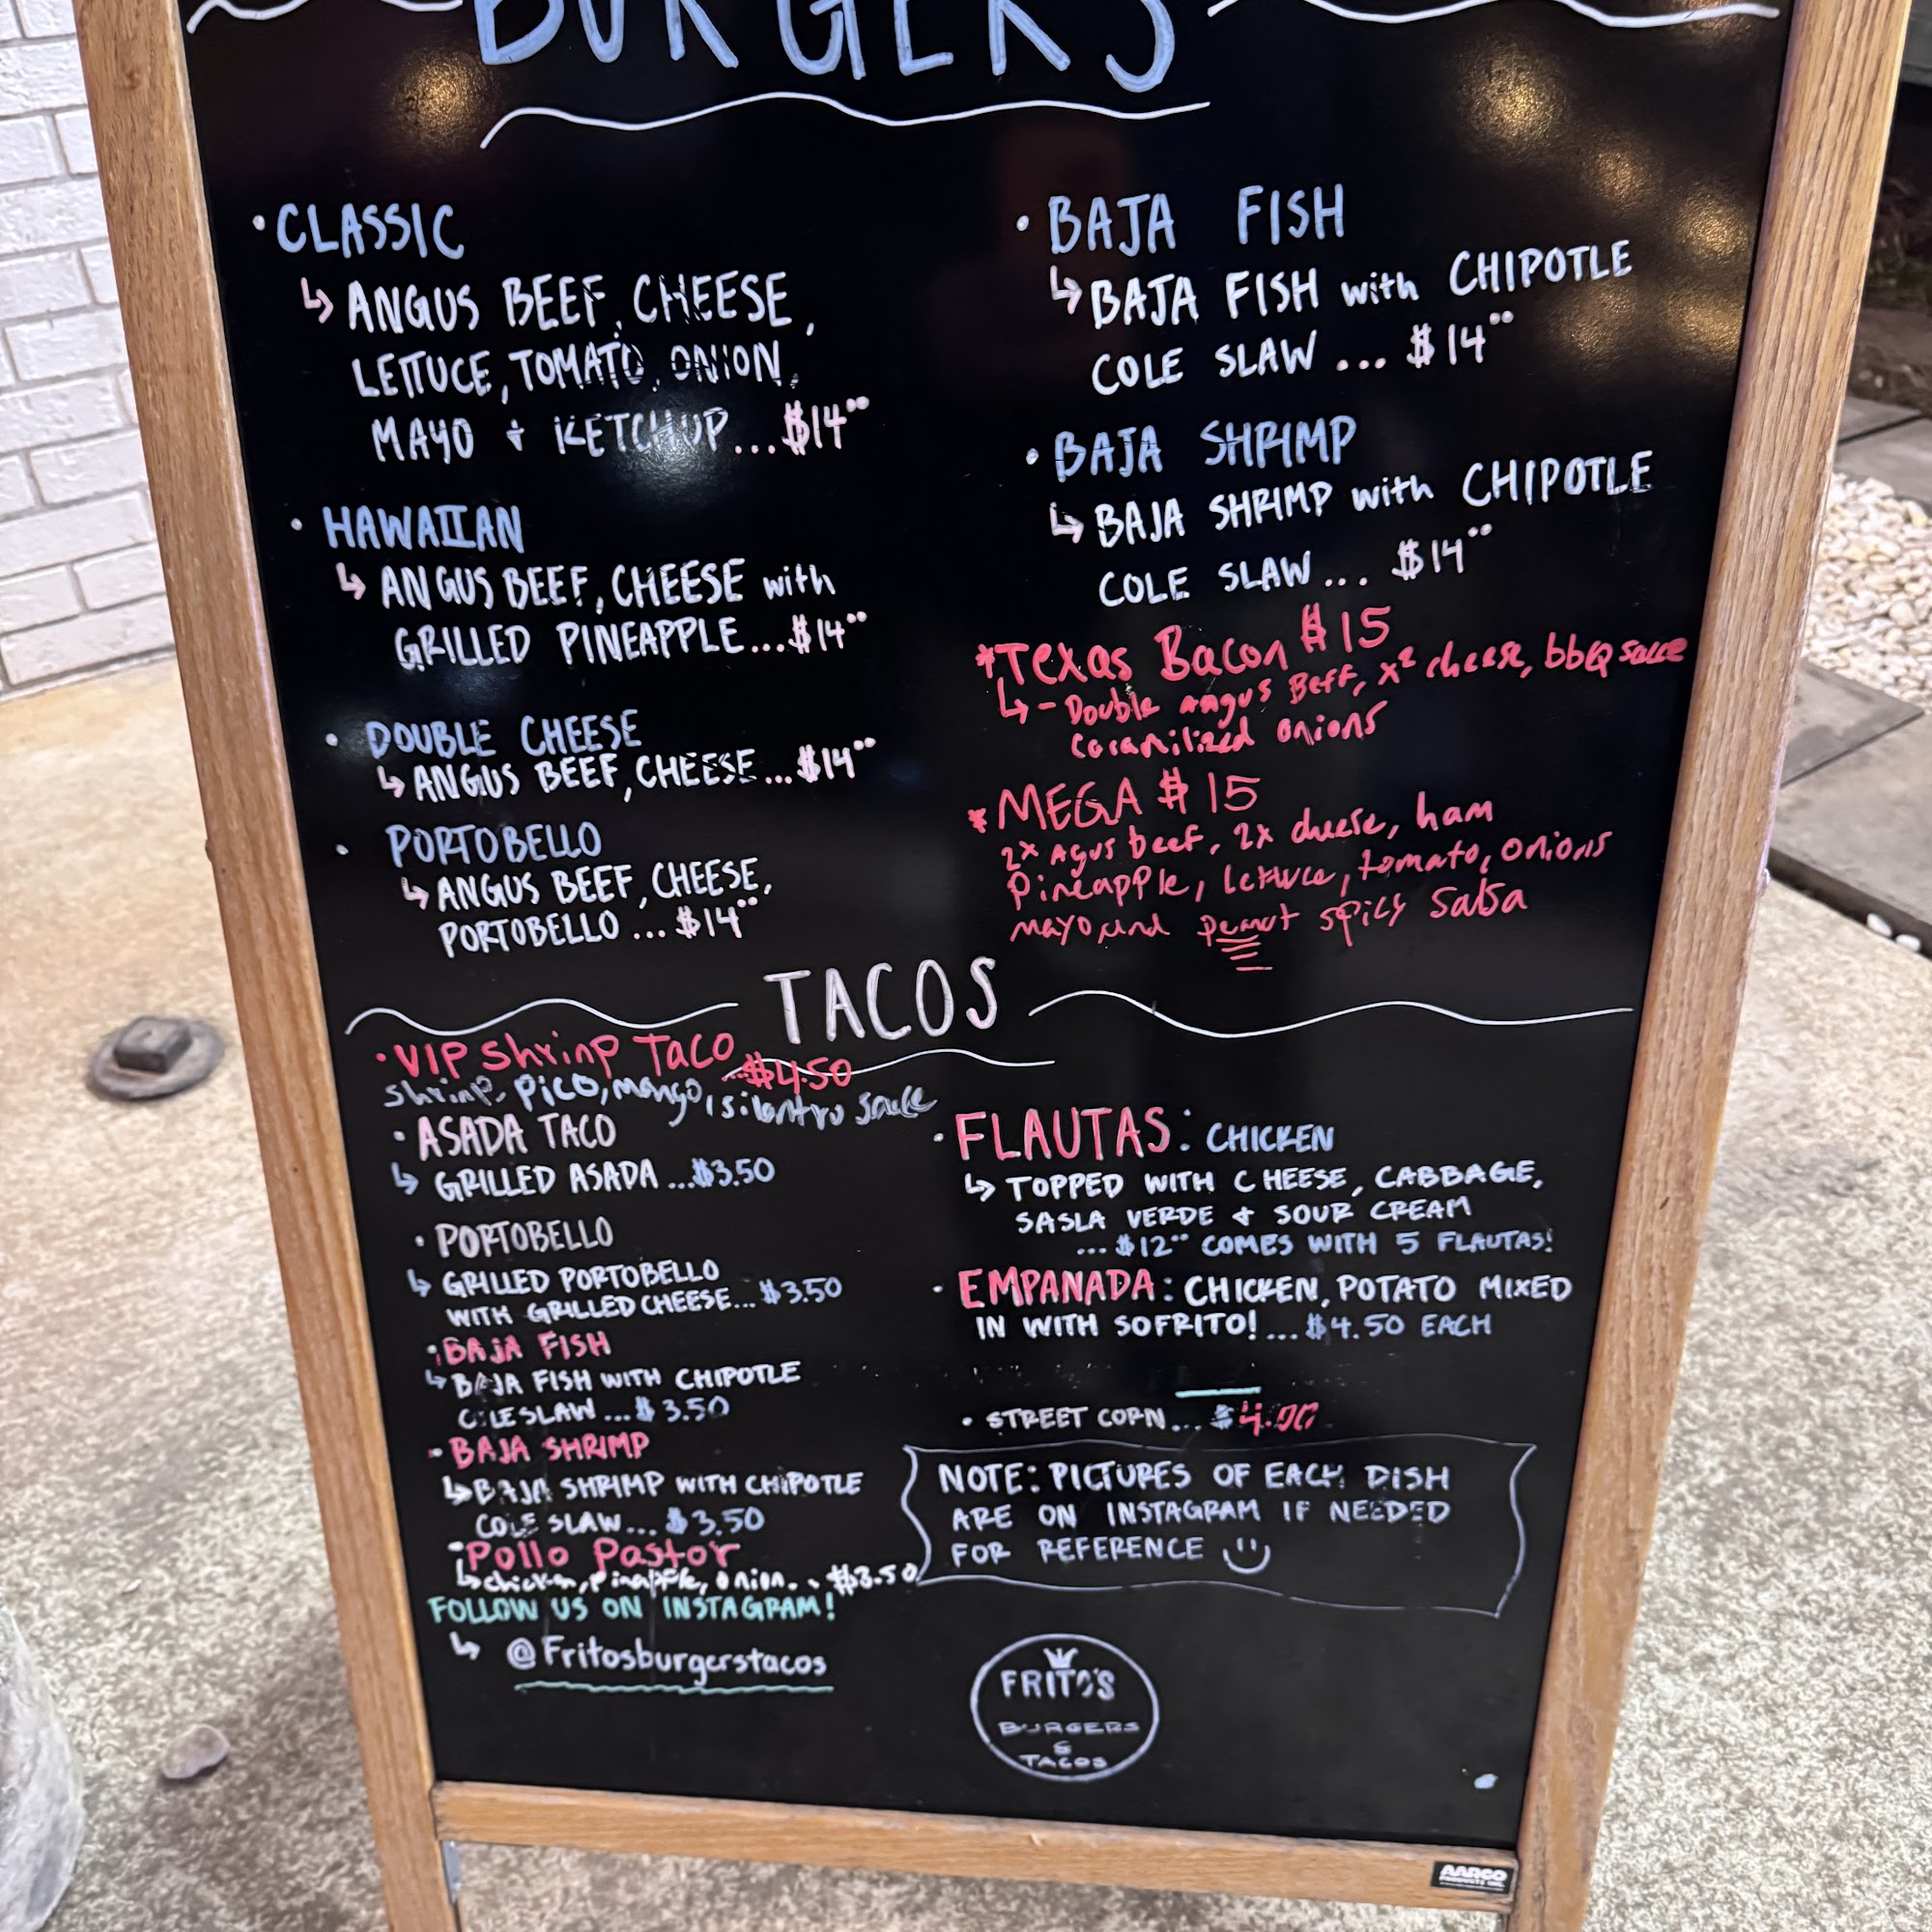 BURGERS
• CLASSIC
↳ ANGUS BEEF, CHEESE,
LETTUCE, TOMATO, ONION,
MAYO + KETCHUP...$14⁰⁰
• HAWAIIAN
↳ ANGUS BEEF, CHEESE with
GRILLED PINEAPPLE...$14⁰⁰
• DOUBLE CHEESE
↳ ANGUS BEEF, CHEESE...$14⁰⁰
• PORTOBELLO
↳ ANGUS BEEF, CHEESE,
PORTOBELLO ...$14⁰⁰
• BAJA FISH
↳ BAJA FISH with CHIPOTLE
COLE SLAW ... $14⁰⁰
• BAJA SHRIMP
↳ BAJA SHRIMP with CHIPOTLE
COLE SLAW ... $14⁰⁰
*Texas Bacon $15
↳ - Double angus Beff, x² cheese, bbQ sauce
Caramilized onions
*MEGA $15
2x Agus beef, 2x cheese, ham
Pineapple, lettuce, tomato, onions
mayo and Peanut spicy Salsa
TACOS
• VIP Shrinp Taco ...$4.50
Shrinp, Pico, mango, silantro sauce
• ASADA TACO
↳ GRILLED ASADA ...$3.50
• PORTOBELLO
↳ GRILLED PORTOBELLO
WITH GRILLED CHEESE...$3.50
• BAJA FISH
↳ BAJA FISH WITH CHIPOTLE
COLESLAW ...$3.50
• BAJA SHRIMP
↳ BAJA SHRIMP WITH CHIPOTLE
COLE SLAW... $3.50
• Pollo Pastor
↳ chicken, Pinapple, onion... $3.50
FOLLOW US ON INSTAGRAM!
↳ @Fritosburgerstacos
• FLAUTAS: CHICKEN
↳ TOPPED WITH CHEESE, CABBAGE,
SASLA VERDE + SOUR CREAM
... $12⁰⁰ COMES WITH 5 FLAUTAS!
• EMPANADA: CHICKEN, POTATO MIXED
IN WITH SOFRITO! ...$4.50 EACH
• STREET CORN... $4.00
NOTE: PICTURES OF EACH DISH
ARE ON INSTAGRAM IF NEEDED
FOR REFERENCE
FRITO'S
BURGERS
&
TACOS
AARCO
PRODUCTS INC.